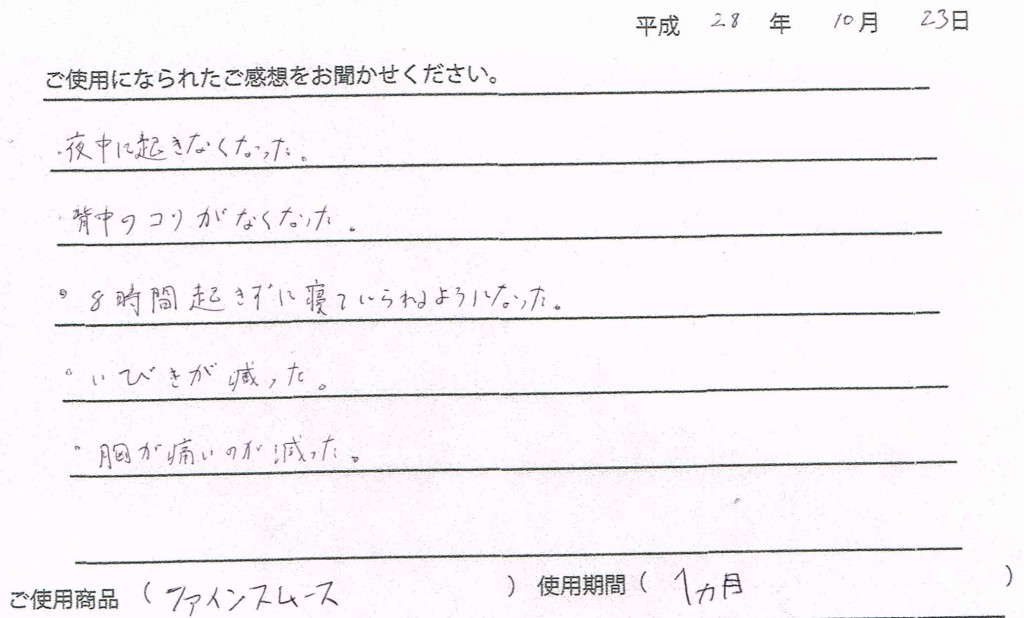 平成 28 年 10月 23日
ご使用になられたご感想をお聞かせください。
・夜中に起きなくなった。
背中のコリがなくなった。
。8時間起きずに寝ていられるようになった。
。いびきが減った。
。胸が痛いのが減った。
ご使用商品 ( ファインスムース ) 使用期間 ( 1ヵ月 )